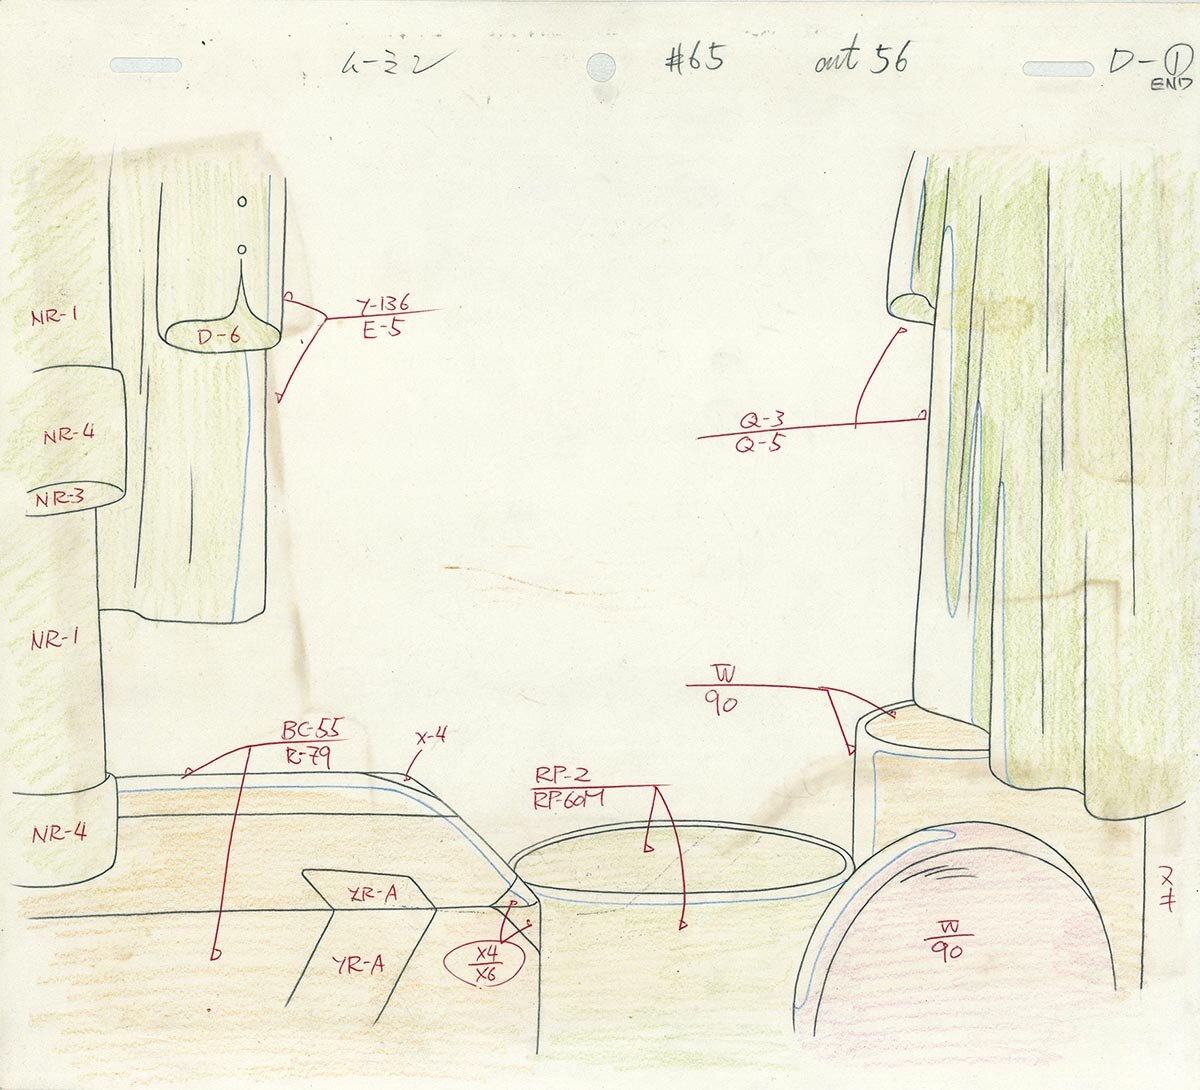 ムーミン #65 cut 56 D-① END
NR-1
D-6
Y-136
E-5
NR-4
NR-3
Q-3
Q-5
NR-1
W
90
BC-55
R-79
X-4
RP-2
RP-60M
NR-4
YR-A
YR-A
X4
X6
W
90
ヌキ